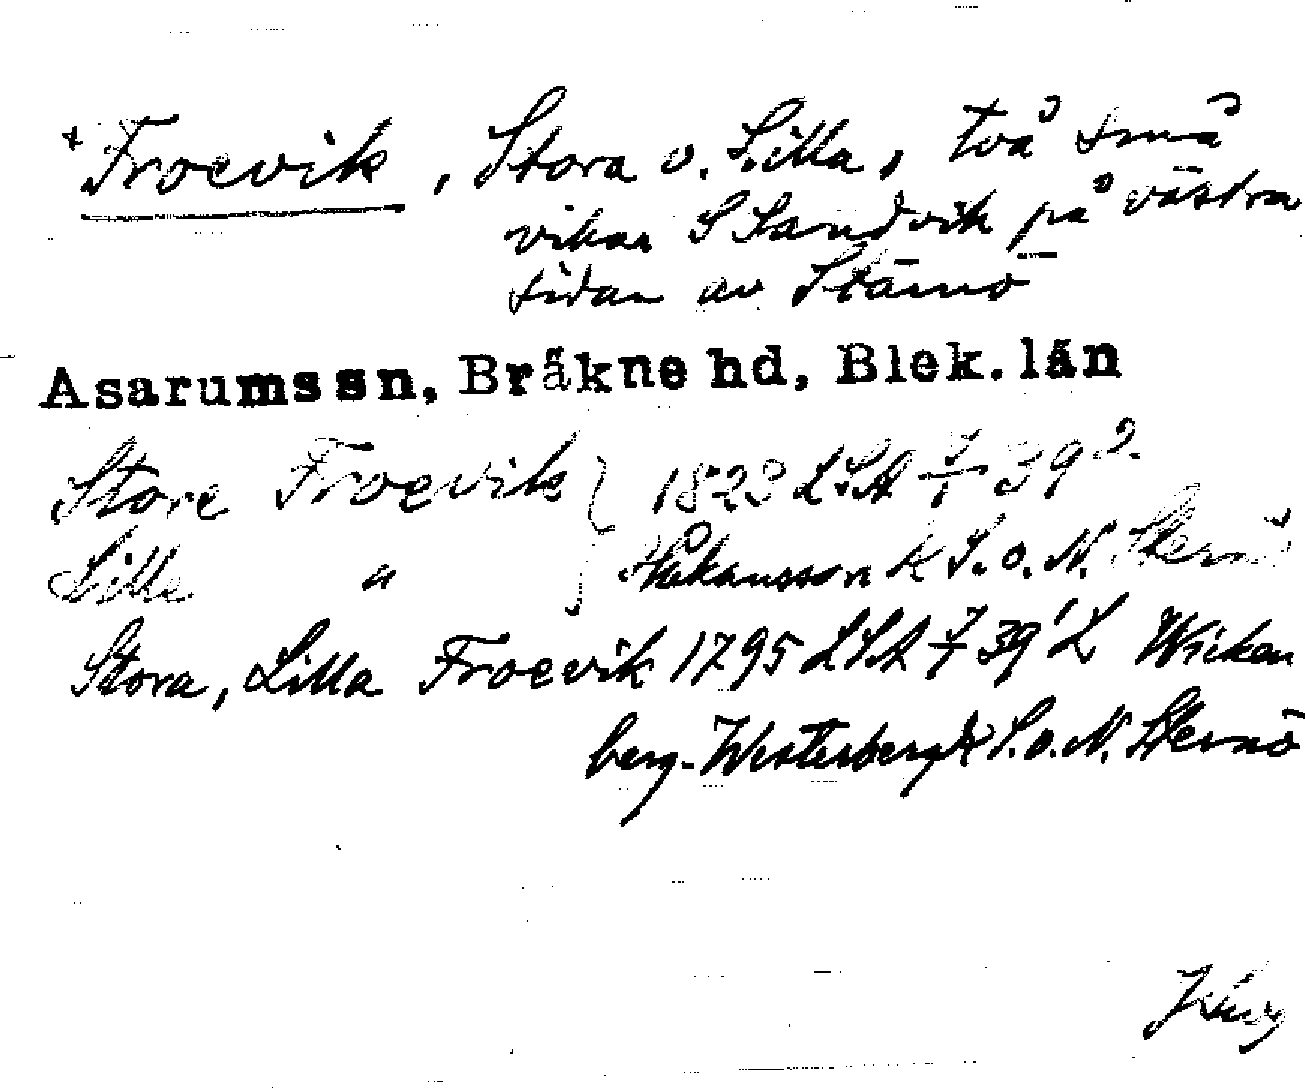 + Froevik, Stora o. Lilla, två små
vikar S Sandvik på västra
sidan av Stärnö
Asarums sn, Bräkne hd, Blek. län
Store Froevik } 1823 LSA F/1 39²
Lille " } Håkansson k S. o. N. Sternö
Stora, Lilla Froevik 1795 LSA 39¹ Wicken
berg-Westerberg k S. o. N. Sternö